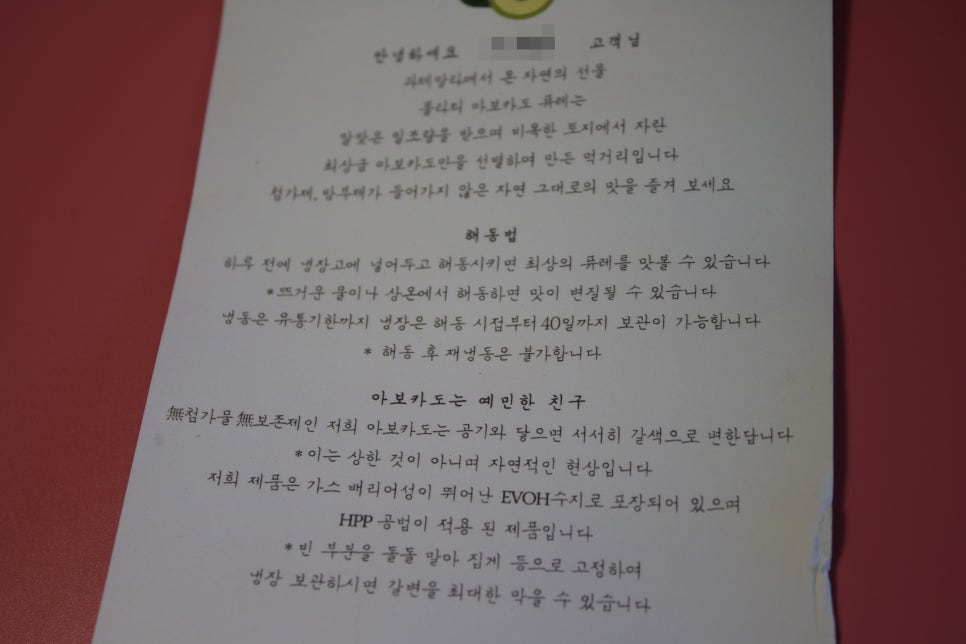 안녕하세요 고객님
과테말라에서 온 자연의 선물
폴라티 아보카도 퓨레는
알맞은 일조량을 받으며 비옥한 토지에서 자란
최상급 아보카도만을 선별하여 만든 먹거리입니다
첨가제, 방부제가 들어가지 않은 자연 그대로의 맛을 즐겨 보세요
해동법
하루 전에 냉장고에 넣어두고 해동시키면 최상의 퓨레를 맛볼 수 있습니다
*뜨거운 물이나 상온에서 해동하면 맛이 변질될 수 있습니다
냉동은 유통기한까지 냉장은 해동 시점부터 40일까지 보관이 가능합니다
* 해동 후 재냉동은 불가합니다
아보카도는 예민한 친구
無첨가물 無보존제인 저희 아보카도는 공기와 닿으면 서서히 갈색으로 변한답니다
*이는 상한 것이 아니며 자연적인 현상입니다
저희 제품은 가스 배리어성이 뛰어난 EVOH수지로 포장되어 있으며
HPP 공법이 적용 된 제품입니다
*빈 부분을 돌돌 말아 집게 등으로 고정하여
냉장 보관하시면 갈변을 최대한 막을 수 있습니다